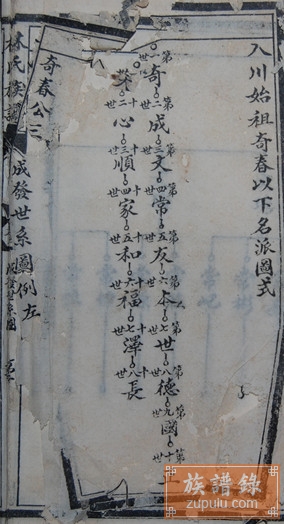 入川始祖奇春以下名派圖式
奇成文常友本世德國
第一世 第二世 第三世 第四世 第五世 第六世 第七世 第八世 第九世 第十
天心順家和福澤長
十二世 十三世 十四世 十五世 十六世 十七世 十八世
奇春公三
成發世系圖例左
林氏族譜
族譜錄
zupulu.com